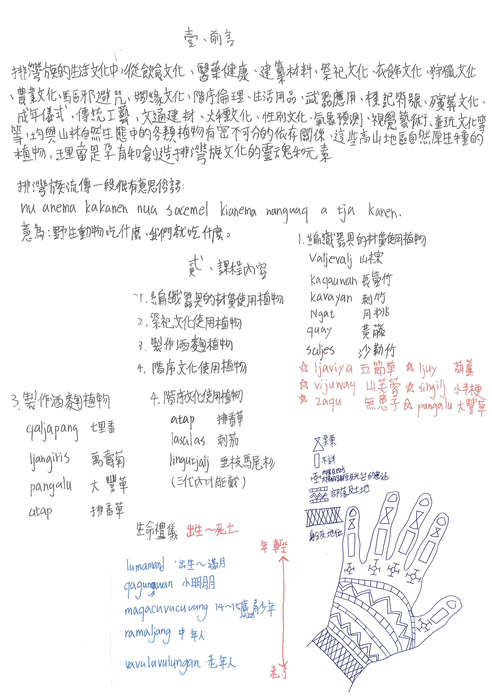 壹、前言
排灣族的生活文化中,從飲食文化、醫藥健康、建築材料、祭祀文化、衣飾文化、狩獵文化
、農業文化、驅邪避咒、婚緣文化、階序倫理、生活用品、武器應用、標記符號、殯葬文化、
成年儀式、傳統工藝、交通建材、火種文化、性別文化、氣象預測、視覺藝術、童玩文化等
等,均與山林自然生態中的各類植物有密不可分的依存關係,這些高山地區自然原生種的
植物,理當是孕育和創造排灣族文化的靈魂和元素
排灣族流傳一段很有意思俗諺:
nu anema kakanen nua sacemel kianema nanguaq a tja kanen.
意為:野生動物吃什麼,我們就吃什麼。
貳、課程內容
1.編織器具的材質使用植物
2.祭祀文化使用植物
3.製作酒麴植物
4.階序文化使用植物
1.編織器具的材質使用植物
valjevalj 山棕
kaqauwan 長蔓竹
kavayan 刺竹
Ngat 月桃
quay 黃藤
saljes 沙勒竹
☆ ljaviya 五節芒 ☆ ljuy 葫蘆
☆ vijuway 山芙蓉 ☆ singilj 小米梗
☆ zaqu 無患子 ☆ pangalu 大豐草
3.製作酒麴植物
qaljapang 七里香
ljangiris 萬壽菊
pangalu 大豐草
atap 排香草
4.階序文化使用植物
atap 排香草
lasalas 刺茄
lingutjalj 垂枝馬尾杉
(三代內才能戴)
生命禮儀 出生~死亡
年輕
lumamad 出生~滿月
小朋朋
maqacuvucuvung 14~15歲青少年
ramaljang 中年人
vavuluvulungan 老年人
老了
部落及土地
身份及地位